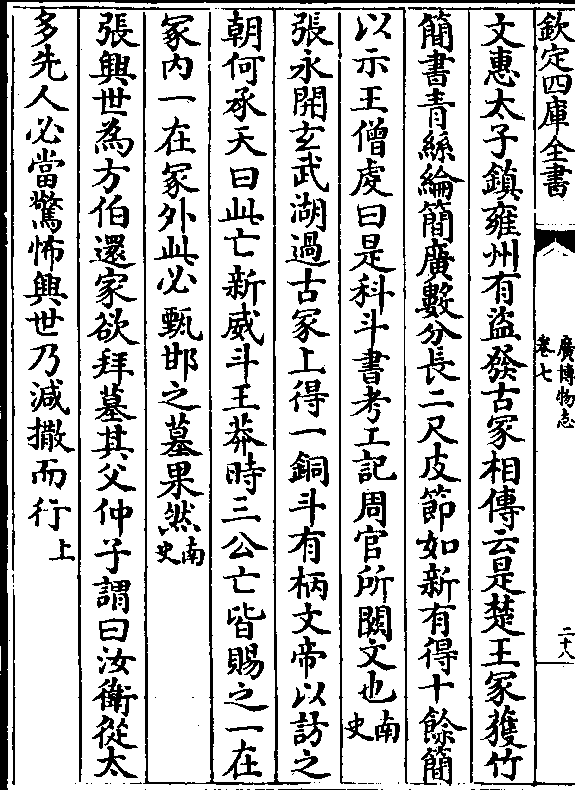 欽定四庫全書
廣博物志
卷七
二十八
文惠太子鎮雍州有盜發古冢相傳云是楚王冢獲竹
簡書青絲綸簡廣數分長二尺皮節如新有得十餘簡
以示王僧虔曰是科斗書考工記周官所闕文也南史
張永開玄武湖過古冢上得一銅斗有柄文帝以訪之
朝何承天曰此亡新威斗王莽時三公亡皆賜之一在
冢内一在冢外此必甄邯之墓果然南史
張興世為方伯還家欲拜墓其父仲子謂曰汝衛從太
多先人必當驚怖興世乃減撤而行上